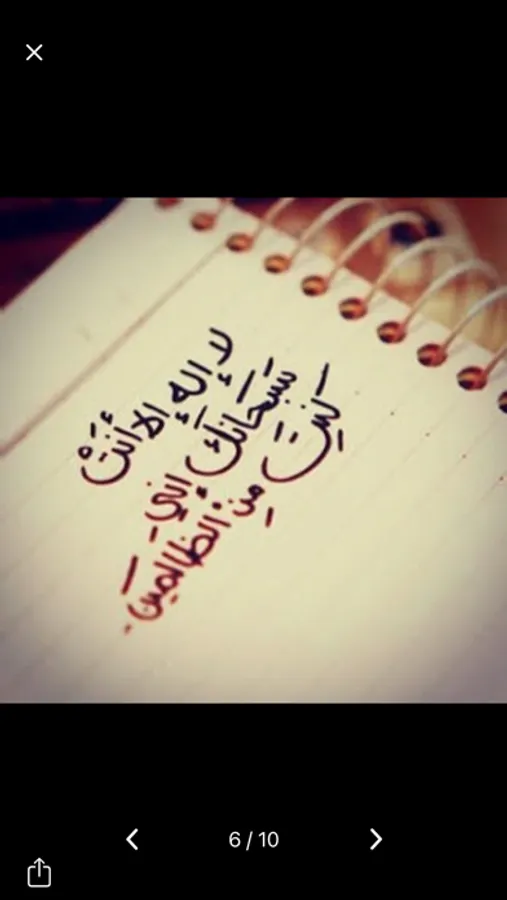 لا إله إلا أنتْ
سبحانك إني
كنت من الظالمين
6/10